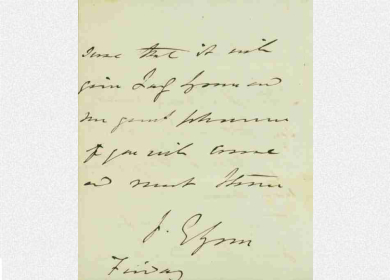 that it will
give Lady
me great pleasure
if you will come
and meet them
J.
Friday